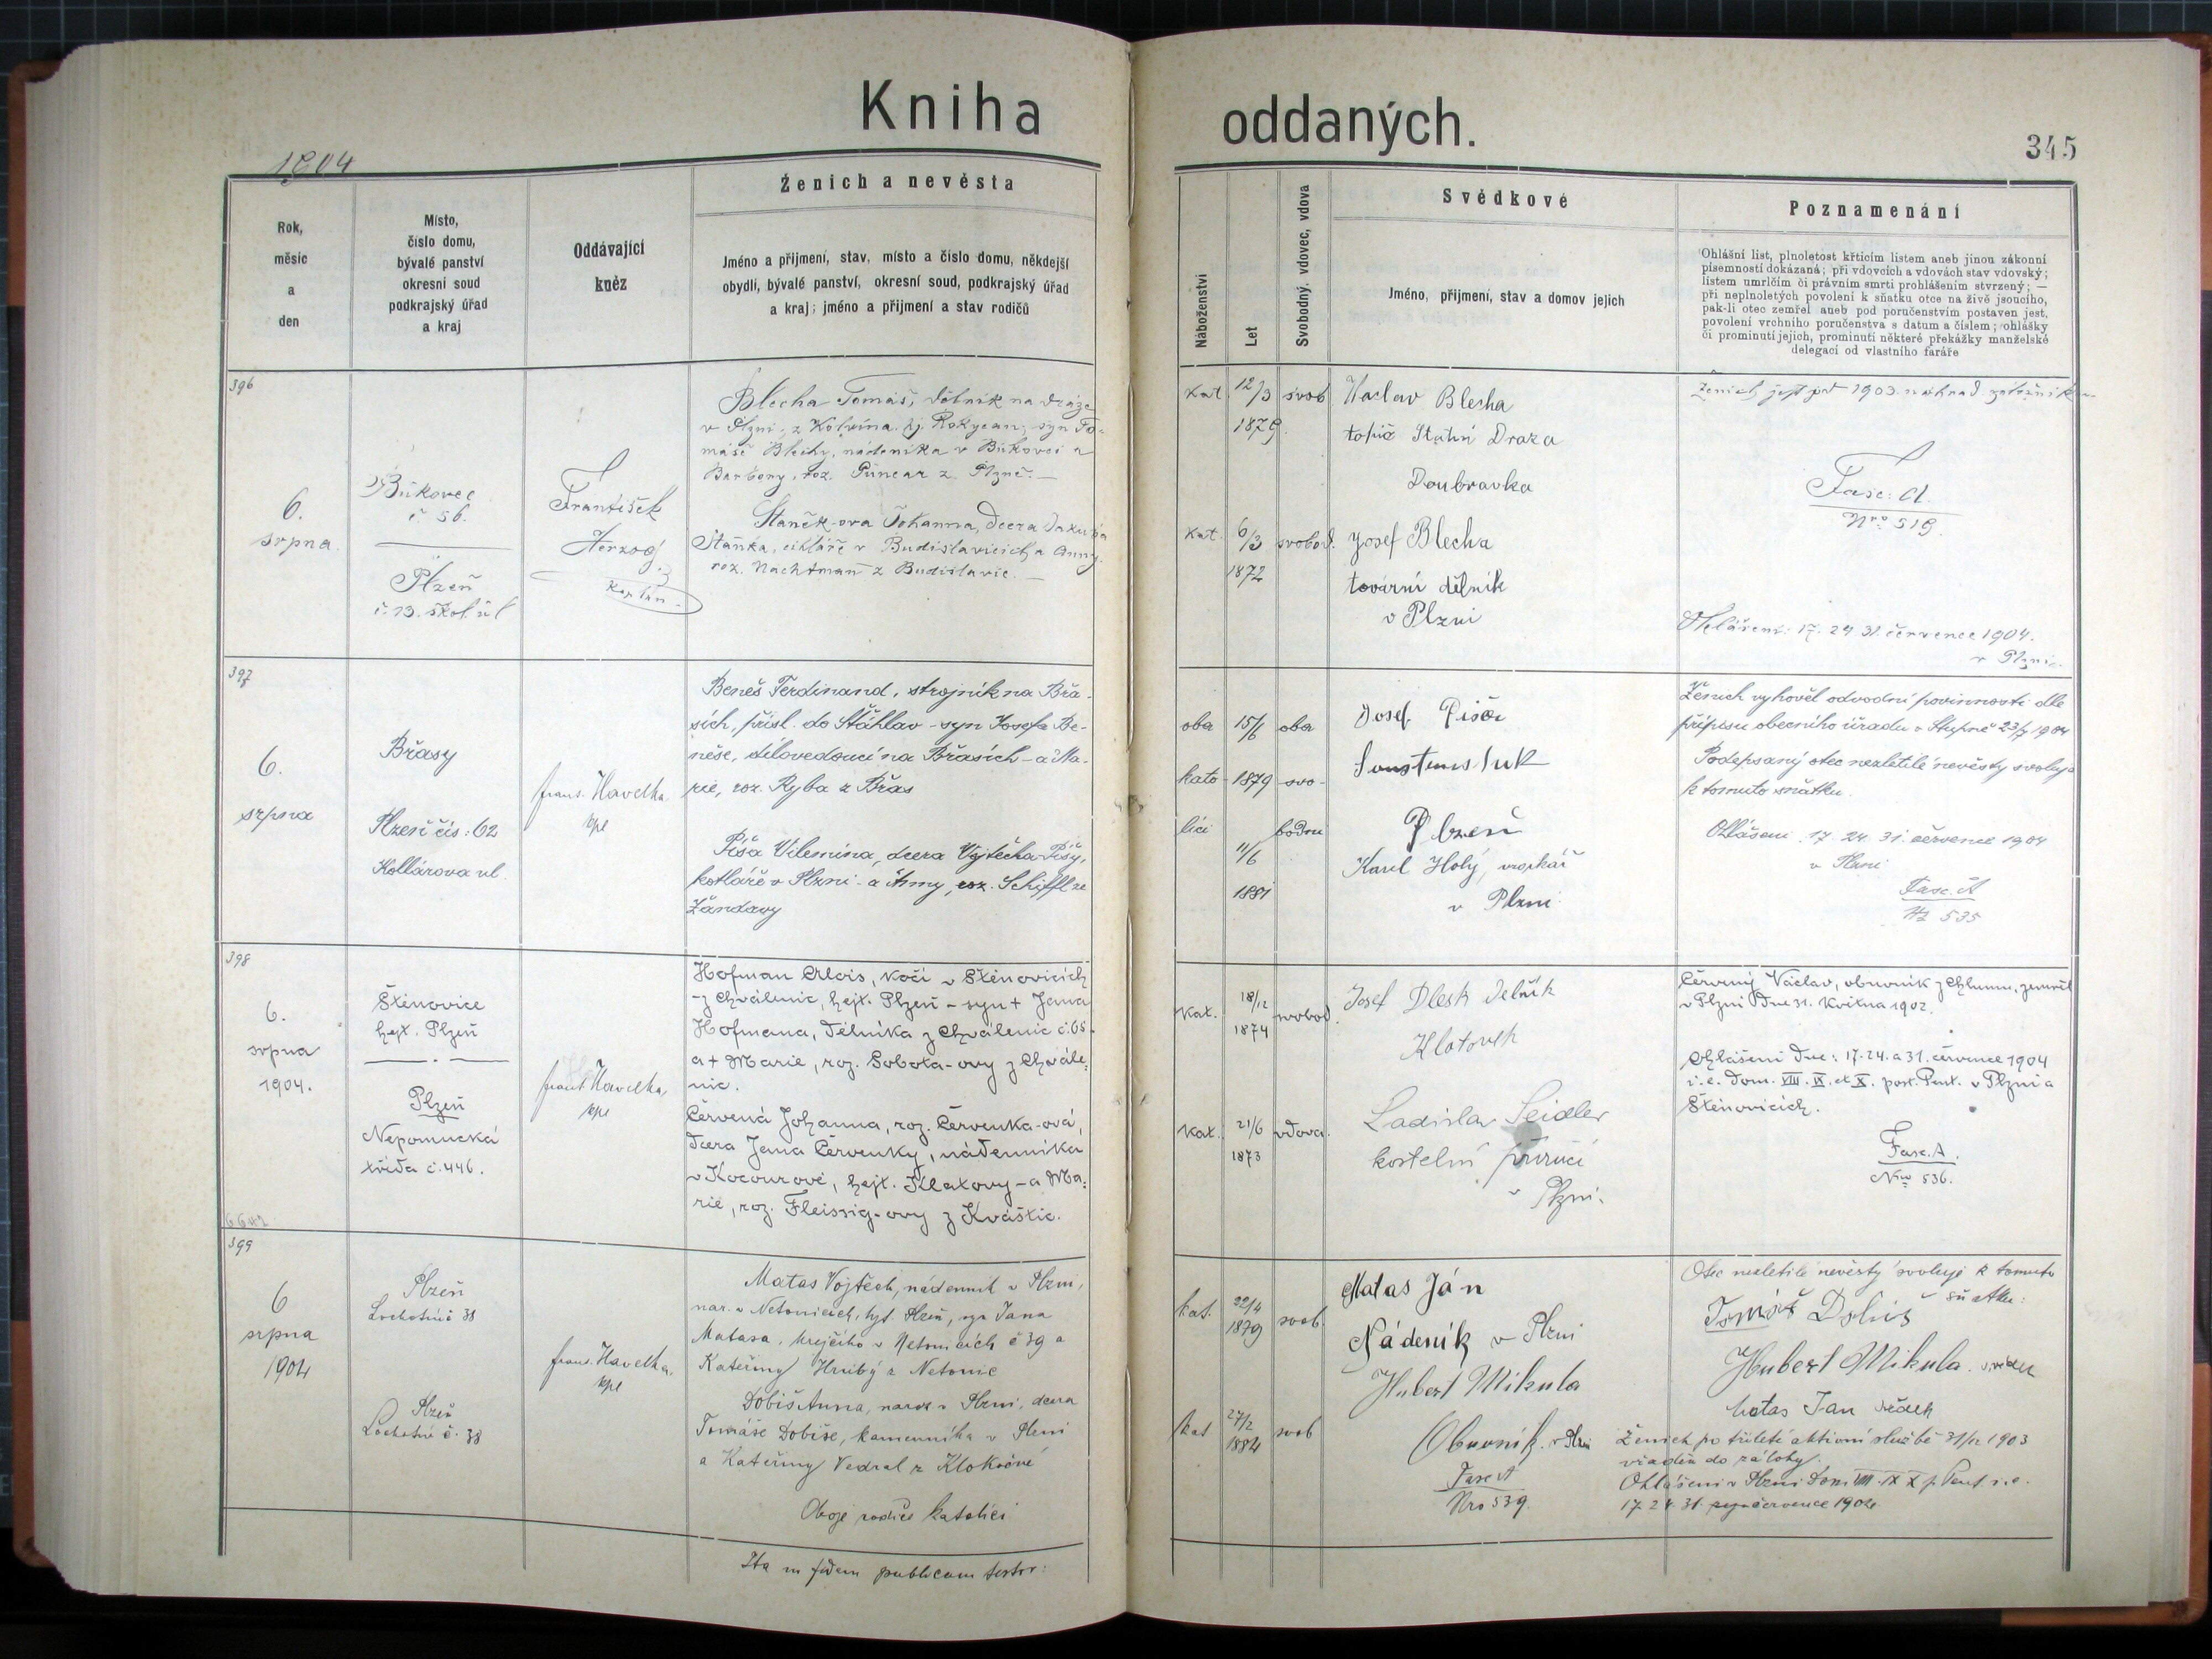 Kniha oddaných.
1904
345
Ženich a nevěsta
Rok,
měsíc
a
den
Místo,
číslo domu,
bývalé panství
okresní soud
podkrajský úřad
a kraj
Oddávající
kněz
Jméno a přijmení, stav, místo a číslo domu, někdejší
obydlí, bývalé panství, okresní soud, podkrajský úřad
a kraj; jméno a přijmení a stav rodičů
Náboženství
Let
Svobodný, vdovec, vdova
Svědkové
Jméno, přijmení, stav a domov jejich
Poznamenání
Ohlášní list, plnoletost křticím listem aneb jinou zákonní
písemností dokázaná; při vdovcích a vdovách stav vdovský;
listem umrlčím či právním smrti prohlášením stvrzený; —
při neplnoletých povolení k sňatku otce na živě jsoucího,
pak-li otec zemřel aneb pod poručenstvím postaven jest,
povolení vrchního poručenstva s datum a číslem; ohlášky
či prominutí jejich, prominutí některé překážky manželské
delegací od vlastního faráře
396
6.
srpna.
Bukovec
č. 56.
Plzeň
č. 13. škol. ul
František
Herzog
kaplan
Blecha Tomáš, dělník na dráze
v Plzni, z Kolvína, hj. Rokycany, syn To-
máše Blechy, nádeníka v Bukovci a
Barbory, roz. Půncar z Plzně.—
Staněk-ova Johanna, dcera Jakuba
Staňka, cihláře v Budislavicích a Anny
roz. Nachtman z Budislavic.—
kat 12/3 svob
1879.
kat. 6/3 svobod.
1872
Vaclav Blecha
topič Statní Draza
Doubravka
Josef Blecha
tovární dělník
v Plzni
Ženich jest od 1903 náhrad. záložníkem
Fasc: A.
Nro 519.
Ohlášení: 17. 24. 31. července 1904.
v Plzni.
397
6.
srpna
Břasy
Plzeň čís: 62
Kollárova ul.
Frant. Havelka,
kpl
Beneš Ferdinand, strojník na Břa-
sích, přísl. do Štáhlav - syn Josefa Be-
neše, dílovedoucí na Břasích - a Ma-
rie, roz. Ryba z Břas
Píša Vilemína, dcera Vojtěcha Píšy,
kotláře v Plzni - a Anny, roz. Schiffl ze
Žándavy
oba 15/6 oba
kato- 1879 svo-
líci bodni
11/6
1881
Josef Píša
Plzeň
Karel Holý,
v Plzni
Ženich vyhověl odvodní povinnosti dle
přípisu obecního úřadu v Stupně 23/7 1904
Podepsaný otec nezletilé nevěsty svoluje
k tomuto sňatku.
Ohlášeni 17. 24. 31. července 1904
v Plzni
Fasc. A
№ 535
398
6.
srpna
1904.
Štěnovice
hejt. Plzeň
Plzeň
Nepomucká
třída č. 446.
Frant. Havelka,
kpl
Hofman Alois, kočí v Štěnovicích
- z Chválenic, hejt. Plzeň - syn + Jana
Hofmana, dělníka z Chválenic č. 65 -
a + Marie, roz. Sobota-ovy z Chvále-
nic.
Červená Johanna, roz. Červenka-ová,
dcera Jana Červenky, nádenníka
v Kocourově, hejt. Klatovy - a Ma-
rie, roz. Fleissig-ovy z Kváštic.
kat. 18/12 svobod.
1874
kat. 21/6 vdova.
1873
Josef Dlesk Dělník
Ladislav Seidler
kostelní
v Plzni.
Červený Václav, obuvník z Chlumu, zemřel
v Plzni dne 31. května 1902.
Ohlášeni dne: 17. 24. a 31. července 1904
i. e. Dom. VIII. IX. et X. post. Pent. v Plzni a
Štěnovicích.
Fasc. A.
Nro 536.
399
6
srpna
1904
Plzeň
Lochotín č 38
Plzeň
Lochotín č. 38
Frant. Havelka,
kpl
Matas Vojtěch, nádenník v Plzni,
nar. v Netonicích, hjt. Plzeň, syn Jana
Matasa, krejčího v Netonicích č 39 a
Kateřiny Hrubý z Netonic
Dobiš Anna, naroz v Plzni, dcera
Tomáše Dobiše, kamenníka v Plzni
a Kateřiny Vedral z Klokočné
Oboje rodiče katolíci
kat. 22/4 svob.
1879
kat 27/2 svob
1884
Matas Ján
Nádeník v Plzni
Hubert Mikula
Obuvník. v Plzni
Fasc A
Nro 539.
Otec nezletilé nevěsty svoluje k tomuto
sňatku:
Tomáš Dobiš
Hubert Mikula. svědek
Matas Jan svědek
Ženich po tříleté aktivní službě 31/12 1903
vřaděn do zálohy.
Ohlášeni v Plzni Dom. VIII. IX X p. Pent i. e.
17. 24. 31. července 1904
Ita in fidem publicam testor: